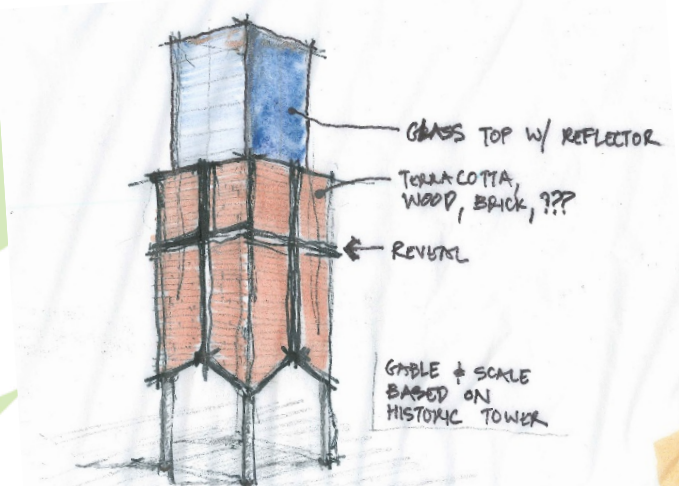 GLASS TOP W/ REFLECTOR
TERRACOTTA,
WOOD, BRICK, ???
REVEAL
GABLE & SCALE
BASED ON
HISTORIC TOWER